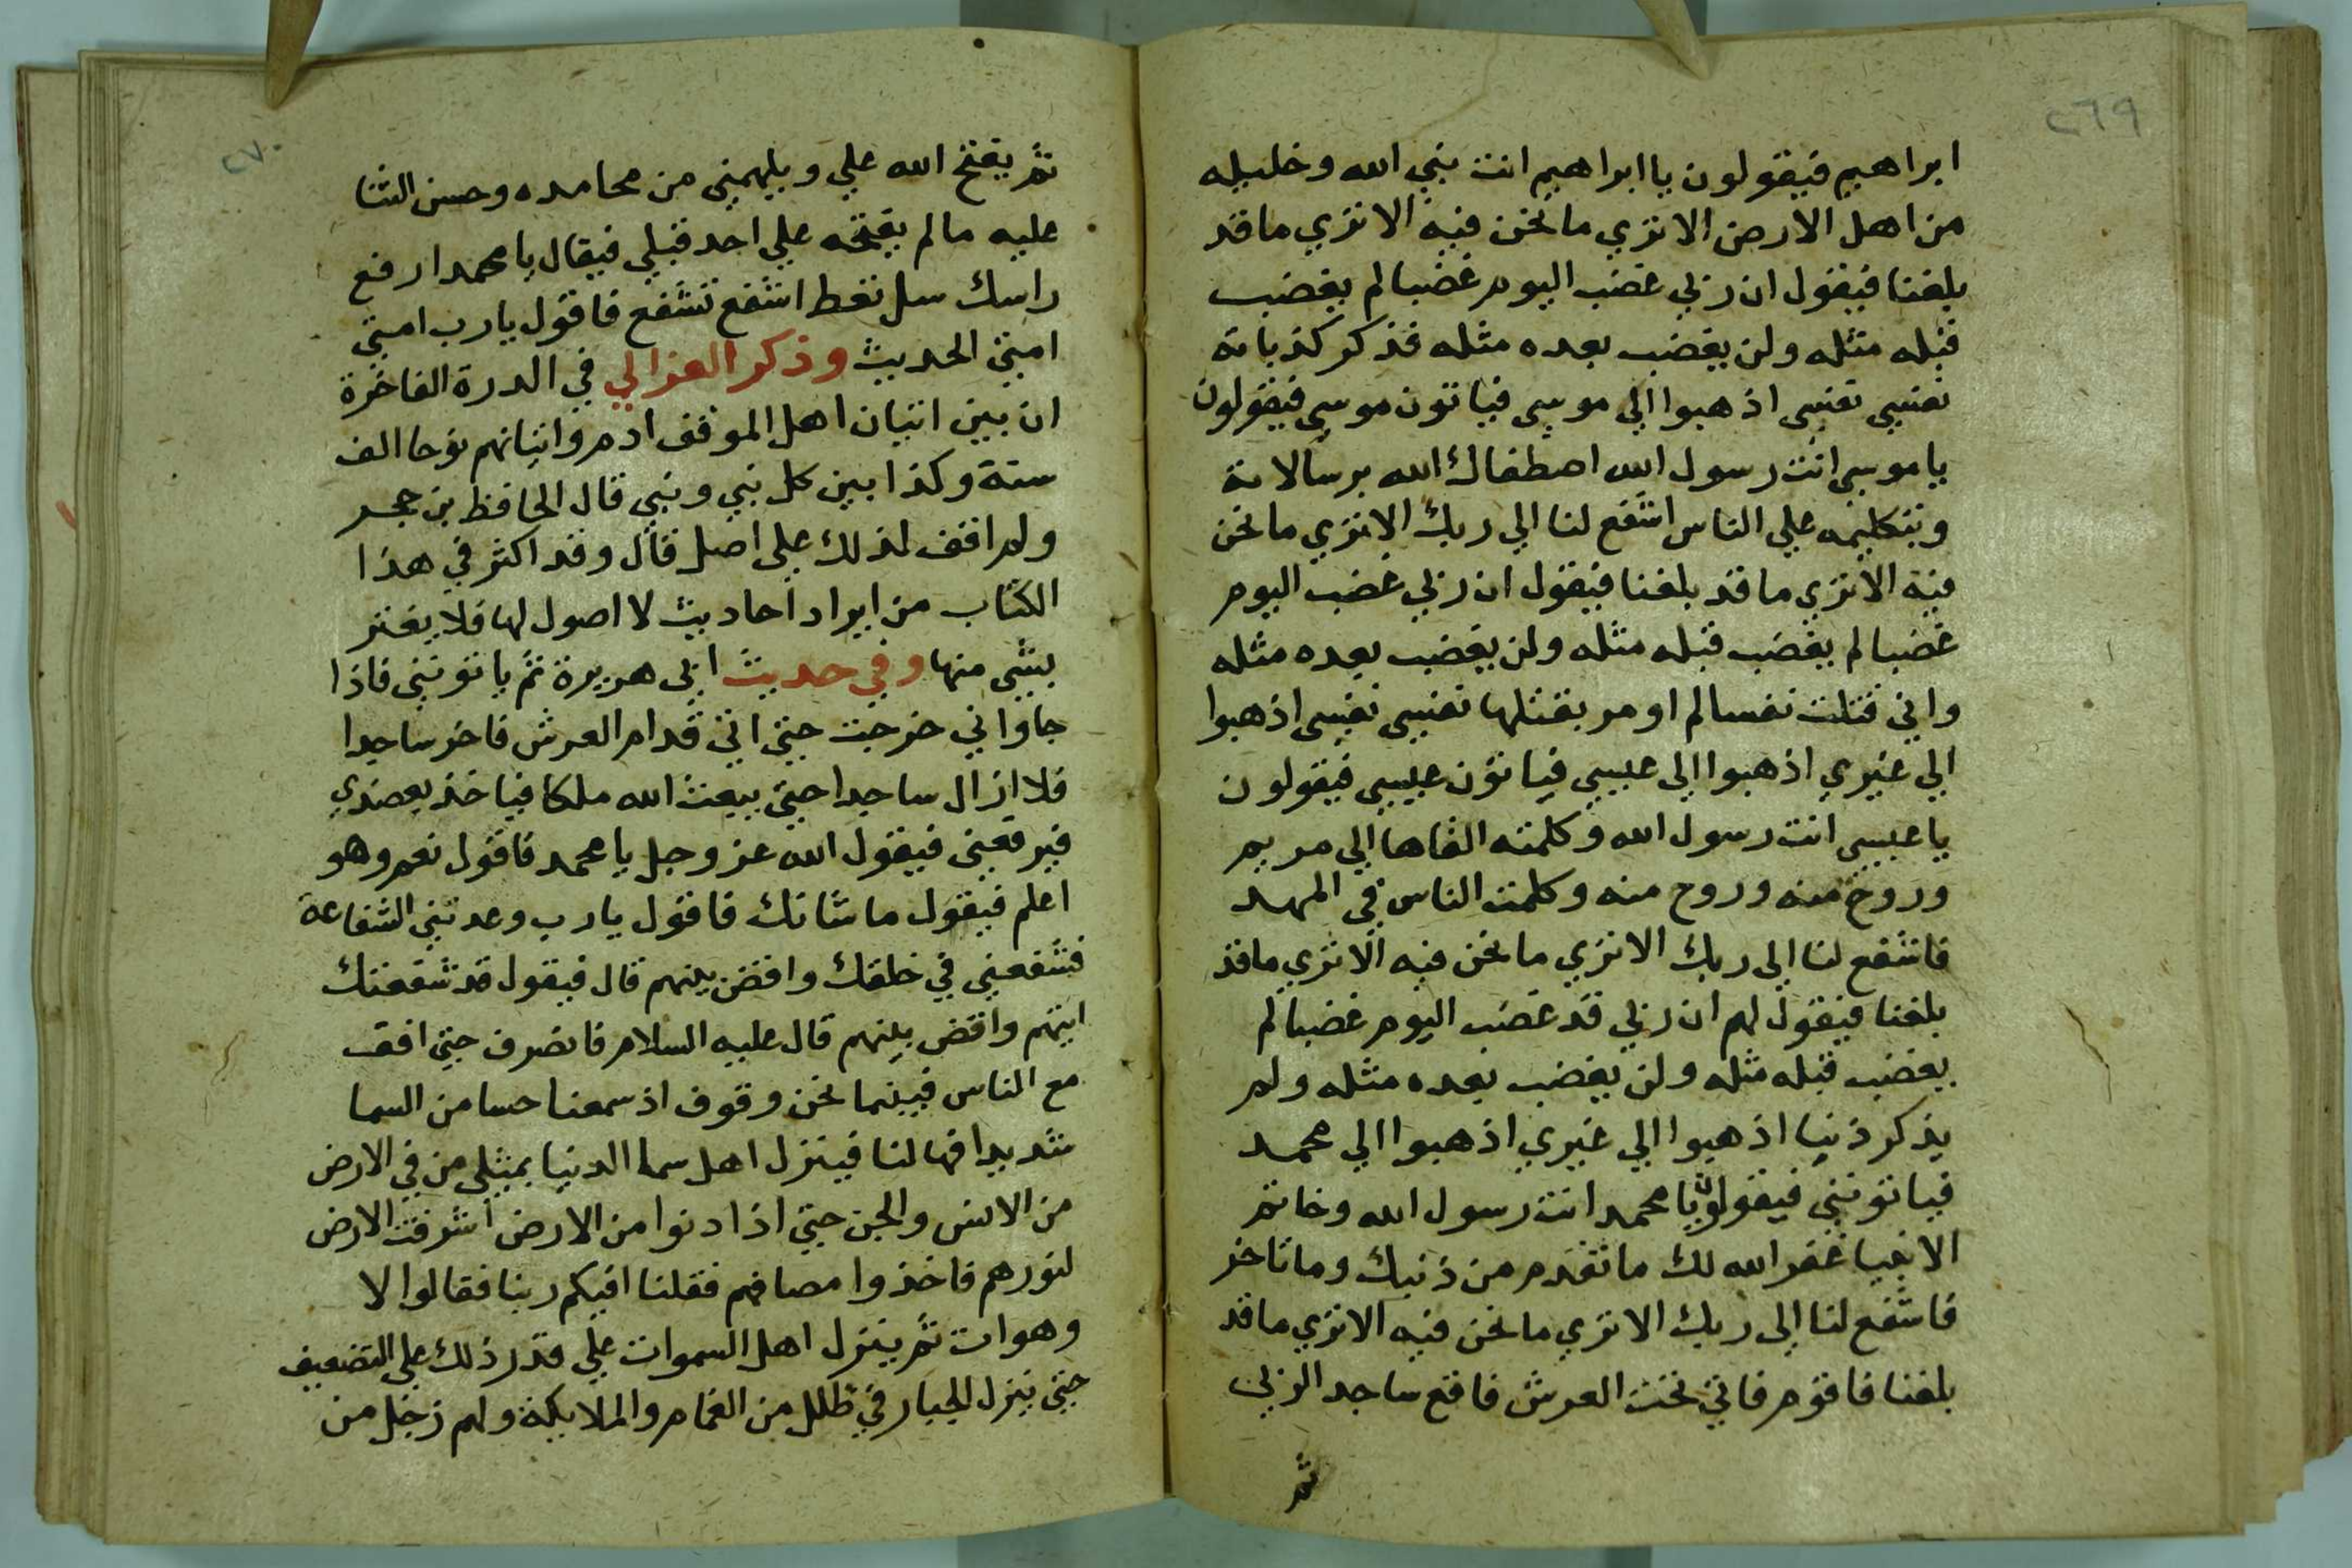 ٢٦٩
ابراهيم فيقولون يا ابراهيم انت نبي الله وخليله
من اهل الارض الا تري ما نحن فيه الا تري ما قد
بلغنا فيقول ان ربي غضب اليوم غضبا لم يغضب
قبله مثله ولن يغضب بعده مثله فذكر كذباته
نفسي نفسي اذهبوا الي موسي فياتون موسي فيقولون
يا موسي انت رسول الله اصطفاك الله برسالاته
وبتكليمه علي الناس اشفع لنا الي ربك الا تري ما نحن
فيه الا تري ما قد بلغنا فيقول ان ربي غضب اليوم
غضبا لم يغضب قبله مثله ولن يغضب بعده مثله
واني قتلت نفسا لم اومر بقتلها نفسي نفسي اذهبوا
الي غيري اذهبوا الي عيسي فياتون عيسي فيقولون
يا عيسي انت رسول الله وكلمته القاها الي مريم
وروح منه وروح منه وكلمت الناس في المهد
فاشفع لنا الي ربك الا تري ما نحن فيه الا تري ما قد
بلغنا فيقول لهم ان ربي قد غضب اليوم غضبا لم
يغضب قبله مثله ولن يغضب بعده مثله ولم
يذكر ذنبا اذهبوا الي غيري اذهبوا الي محمد
فياتونني فيقولون يا محمد انت رسول الله وخاتم
الانبيا غفر الله لك ما تقدم من ذنبك وما تاخر
فاشفع لنا الي ربك الا تري ما نحن فيه الا تري ما قد
بلغنا فاقوم فاتي تحت العرش فاقع ساجد الربي
ثم
٢٧٠
ثم يفتح الله علي ويلهمني من محامده وحسن الثنا
عليه ما لم يفتحه علي احد قبلي فيقال يا محمد ارفع
راسك سل تعط اشفع تشفع فاقول يا رب امتي
امتي الحديث وذكر الغزالي في الدرة الفاخرة
ان بين اتيان اهل الموقف ادم واتيانهم نوحا الف
سنة وكذا بين كل نبي ونبي قال الحافظ بن حجر
ولم اقف لذلك علي اصل قال وقد اكثر في هذا
الكتاب من ايراد احاديث لا اصول لها فلا يغتر
بشي منها وفي حديث ابي هريرة ثم ياتونني فاذا
جاواني خرجت حتي اتي قدام العرش فاخر ساجدا
فلا ازال ساجدا حتي يبعث الله ملكا فياخذ بعضدي
فيرفعني فيقول الله عز وجل يا محمد فاقول نعم وهو
اعلم فيقول ما شانك فاقول يا رب وعدتني الشفاعة
فشفعني في خلقك واقض بينهم قال فيقول قد شفعتك
اتيهم واقض بينهم قال عليه السلام فانصرف حتي اقف
مع الناس فبينما نحن وقوف اذ سمعنا حسا من السما
شديدا فهالنا فينزل اهل سما الدنيا بمثلي من في الارض
من الانس والجن حتي اذا دنوا من الارض اشرقت الارض
لنورهم فاخذوا مصافهم فقلنا افيكم ربنا فقالوا لا
وهوات ثم ينزل اهل السموات علي قدر ذلك علي التضعيف
حتي ينزل الجبار في ظلل من الغمام والملايكة ولهم زجل من